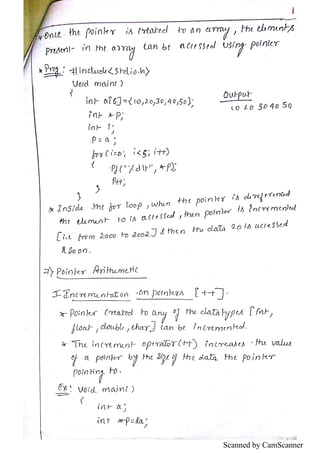 1
* Once the pointer is created to an array, the elements
present in the array can be accessed using pointer
* Prog: #include<stdio.h>
void main()
{
int a[5]={10,20,30,40,50};
Output
10 20 30 40 50
int *p;
int i;
p=a;
for(i=0; i<5; i++)
{
pf("%d\t", *p);
p++;
}
}
* Inside the for loop, when the pointer is dereferenced
the element 10 is accessed, then pointer is Incremented
[i.e from 2000 to 2002] & then the data 20 is accessed
& so on.
Pointer Arithmetic
I. Incrementation on pointers [++].
* Pointer created to any of the datatypes [int,
float, double, char] can be Incremented.
* The increment operator(++) increases the value
of a pointer by the size of the data the pointer
pointing to.
Ex: void main()
{
int a;
int *p=&a;
Scanned by CamScanner